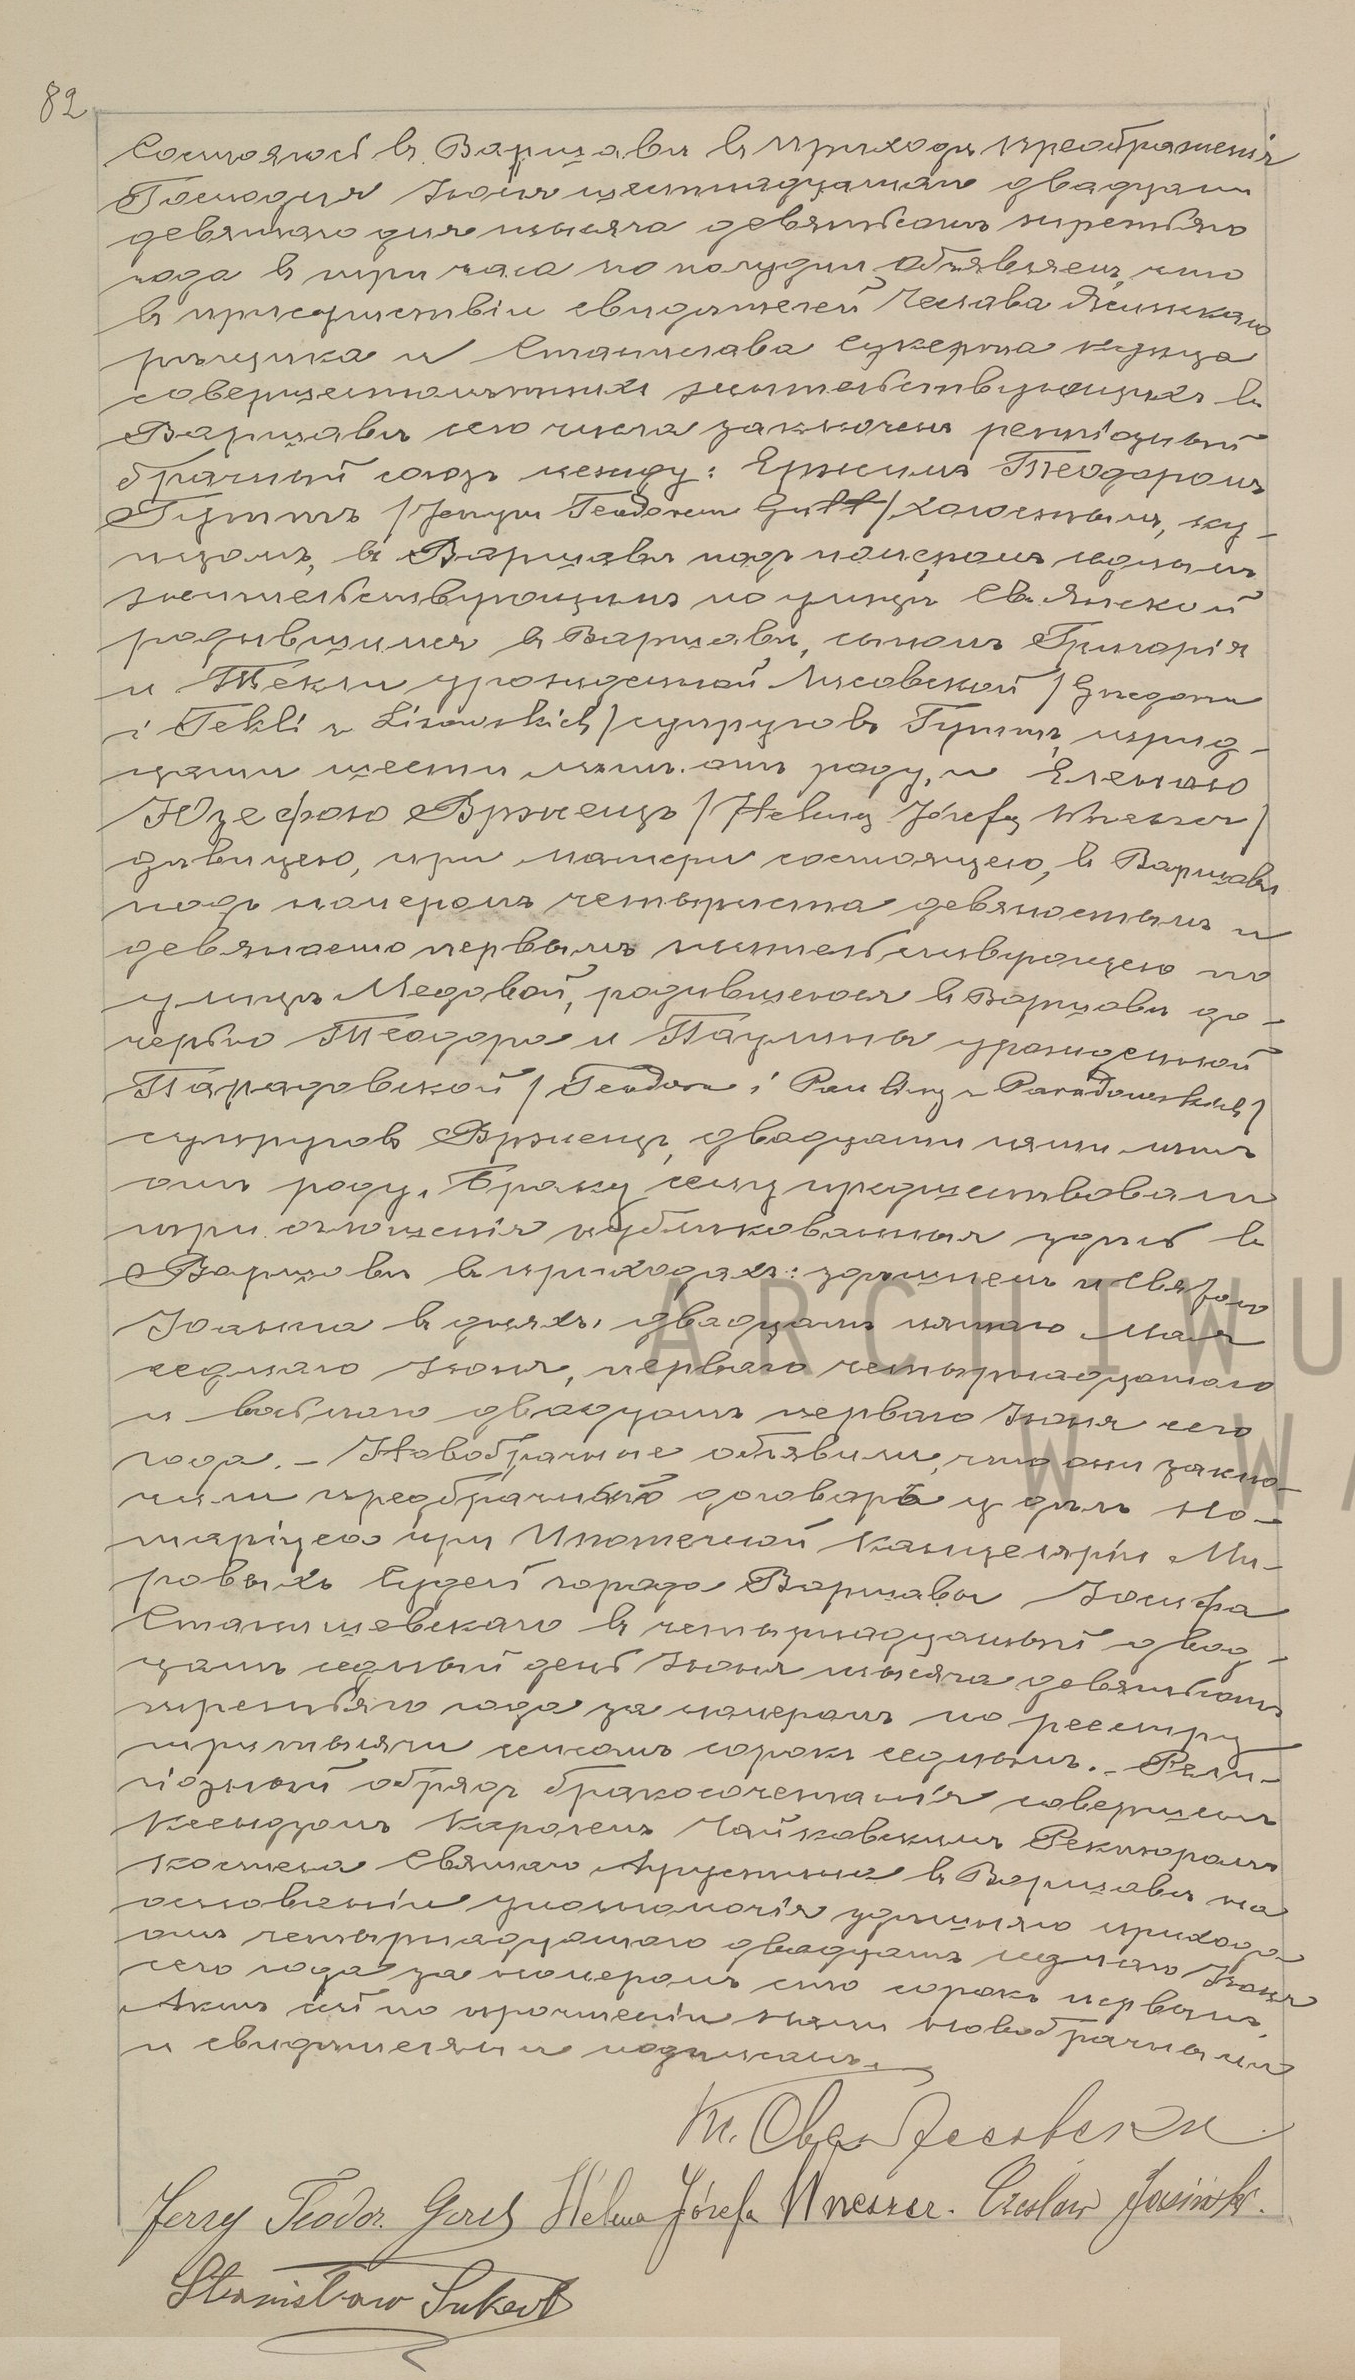 82
Состоялось въ Варшавѣ въ приходѣ Преображенія
Господня Іюня шестнадцатаго двадцать
девятаго дня тысяча девятьсотъ третьяго
года въ три часа по полудни. Объявляемъ, что
въ присутствіи свидѣтелей Чеслава Ясинскаго
рѣщика и Станислава Сукерта купца
совершеннолѣтнихъ жительствующихъ въ
Варшавѣ сего числа заключенъ религіозный
брачный союзъ между: Ержимъ Теодоромъ
Гуттъ /Jerzym Teodorem Gutt/ холостымъ, ку-
пцомъ, въ Варшавѣ подъ номеромъ седьмымъ
жительствующимъ по улицѣ Св.-Янской
родившимся въ Варшавѣ, сыномъ Григорія
и Текли урожденной Лисовской /Grzegorza
i Tekli z Lisowskich/ супруговъ Гуттъ, тридцати
шести лѣтъ отъ роду, и Еленою
Юзефою Врженщъ /Heleną Józefą Wrzeszcz/
дѣвицею, при матери состоящею, въ Варшавѣ
подъ номеромъ четыреста девяностымъ и
девяносто первымъ жительствующею по
улицѣ Медовой, родившеюся въ Варшавѣ до-
черью Теодора и Паулины урожденной
Парадовской /Teodora i Pauliny z Paradowskich/
супруговъ Врженщъ, двадцати пяти лѣтъ
отъ роду. Браку сему предшествовали
три оглашенія публикованныя здѣсь въ
Варшавѣ въ приходахъ: здѣшнемъ и Святого
Іоанна въ дняхъ: двадцать пятаго Мая
седьмаго Іюня, перваго четырнадцатаго
и восьмаго двадцать перваго Іюня сего
года. – Новобрачные объявили, что они заклю-
чили предбрачный договоръ у дѣлъ Но-
таріуса при Ипотечной Канцеляріи Ми-
ровыхъ Судей города Варшавы Іосифа
Станишевскаго въ четырнадцатый двад-
цать седьмый день Іюня тысяча девятьсотъ
третьяго года за номеромъ по реестру
три тысячи сорокъ седьмымъ. – Рели-
гіозный обрядъ бракосочетанія совершенъ
Ксендзомъ Каролемъ Чайковскимъ Ректоромъ
костела Святаго Августина въ Варшавѣ на
основаніи уполномочія здѣшняго прихода
отъ четырнадцатаго двадцать седьмаго Іюня
сего года за номеромъ сто сорокъ первымъ.
Актъ сей по прочтеніи нами новобрачными
и свидѣтелями подписанъ.
Jerzy Teodor Gutt Helena Józefa Wrzeszcz. Czesław Jasiński.
Stanisław Sukert
ARCHIWU
W WA